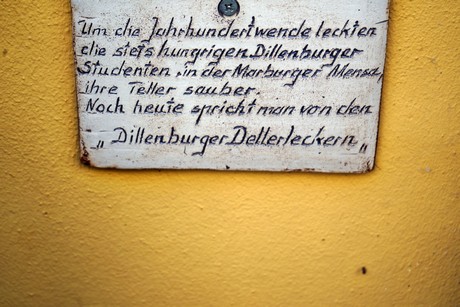 Um die Jahrhundertwende leckten
die stets hungrigen Dillenburger
Studenten, in der Marburger Mensa,
ihre Teller sauber.
Noch heute spricht man von den
„Dillenburger Dellerleckern„